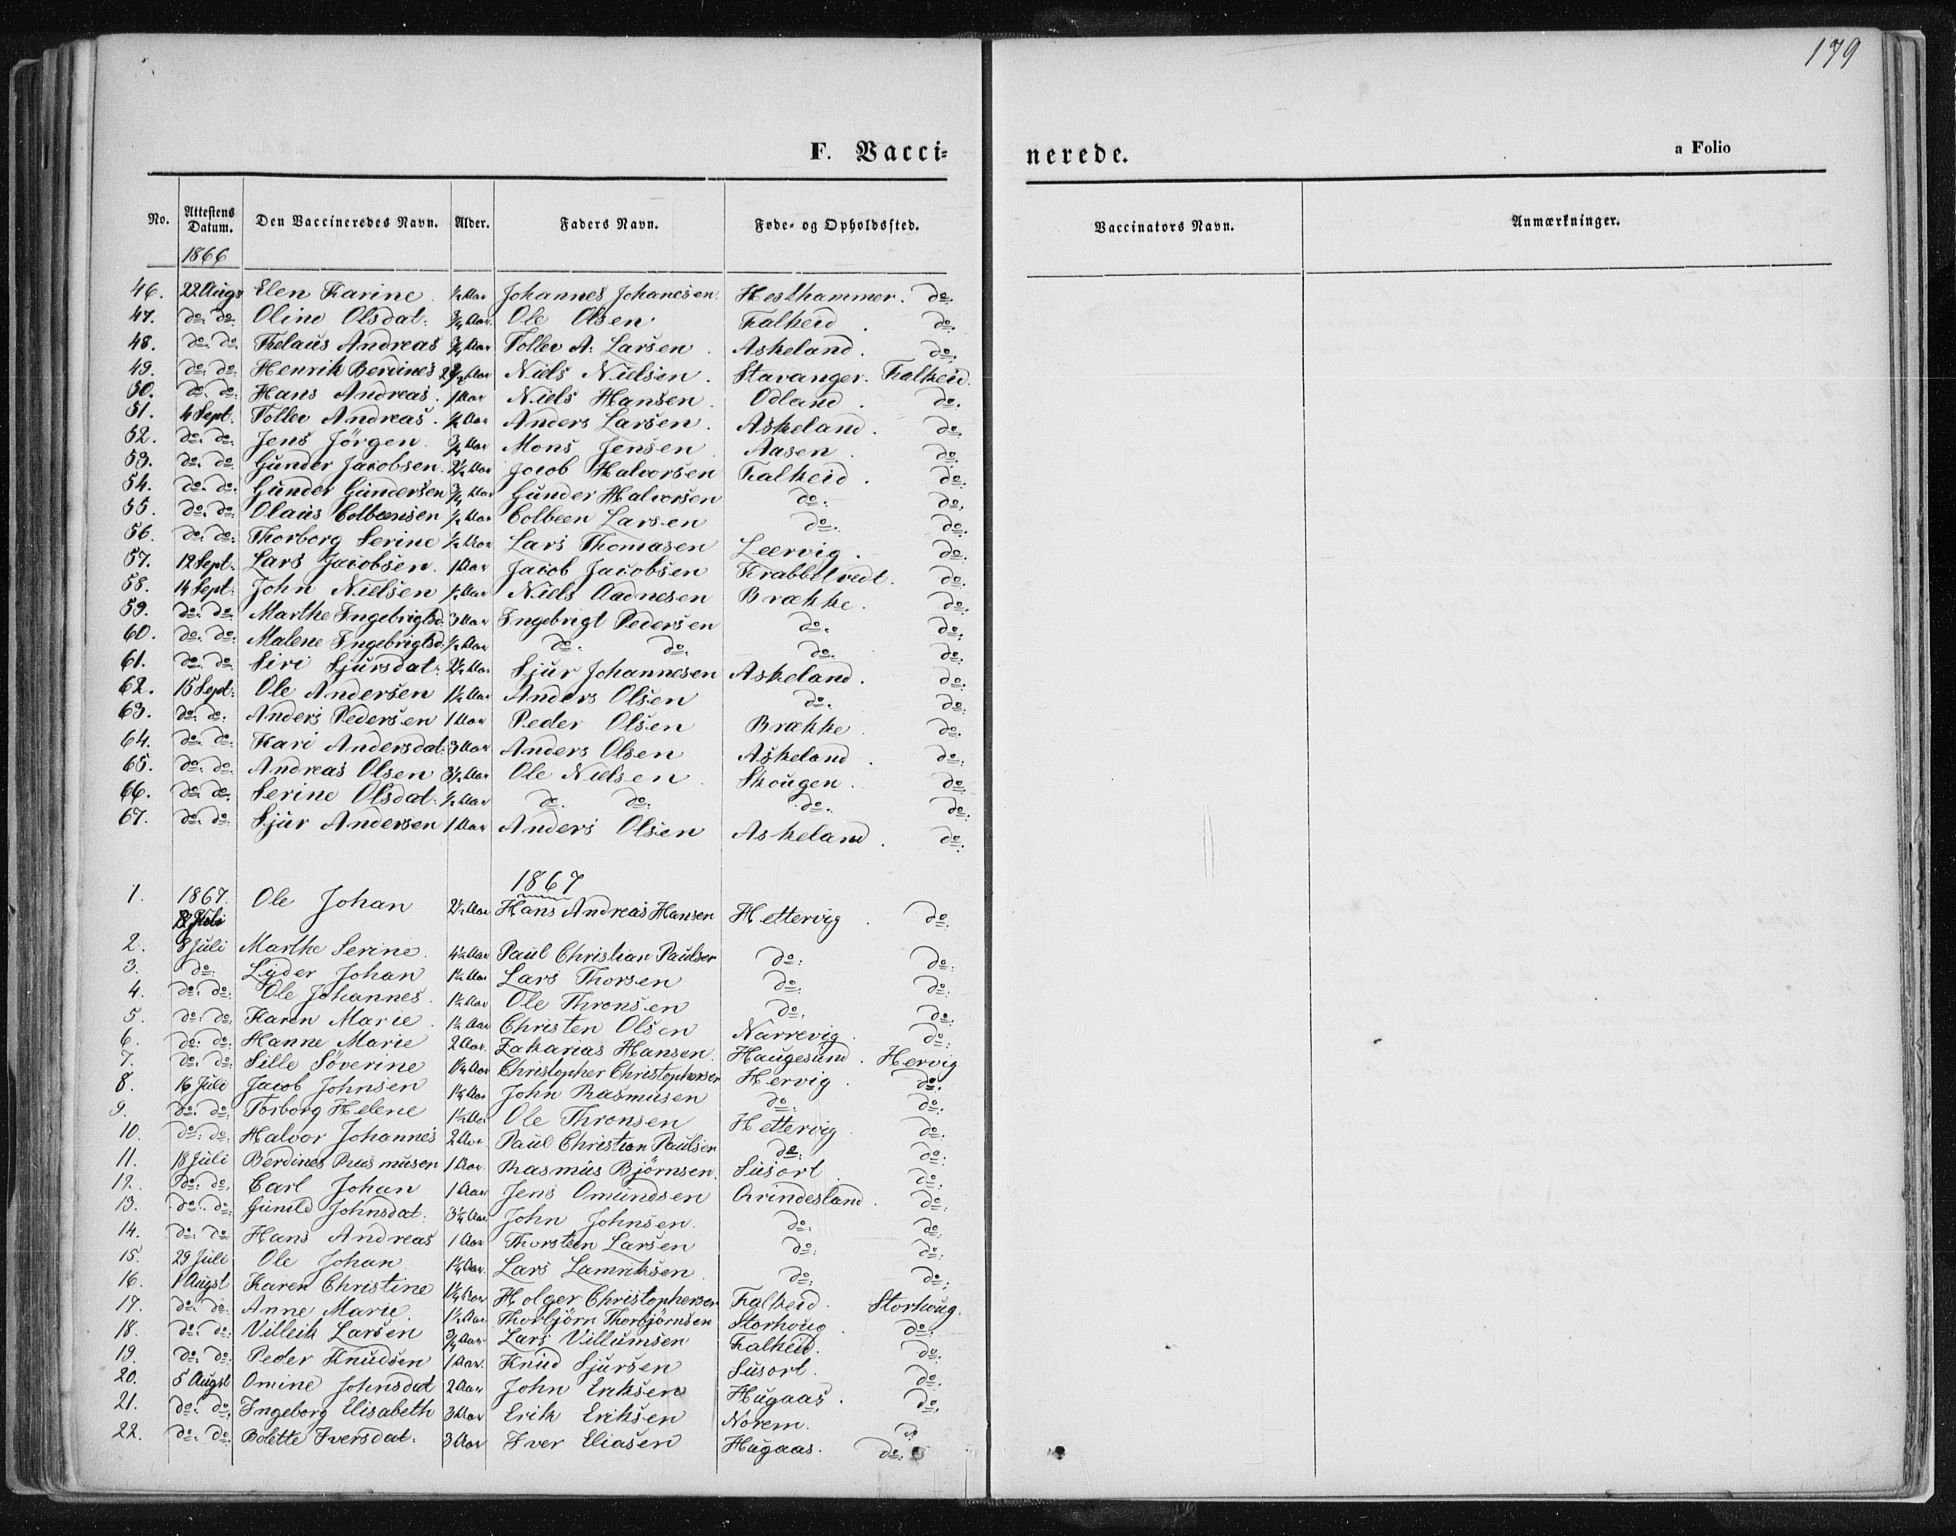 179
F. Vacci=
nerede.
a Folio
No. Attestens Datum. Den Vaccineredes Navn. Alder. Faders Navn. Føde- og Opholdssted. Vaccinators Navn. Anmærkninger.
1866
46. 22 Augs Elen Karine ½ Aar Johannes Johanesen. Hesthammer. do.
47. do. do. Oline Olsdat: ¾ Aar. Ole Olsen. Falkeid. do.
48. do. do. Thelaus Andreas ¾ Aar Tollev A: Larsen. Askeland. do.
49. do: do: Henrik Berdines Aar Niels Nielsen. Stavanger. Falkeid.
50. do. do: Hans Andreas. 1 Aar Niels Hansen. Odland. do.
51. 4 Sept. Tollev Andreas. ½ Aar Anders Larsen. Askeland. do.
52. do: do: Jens Jörgen. ¾ Aar Mons Jensen. Aasen. do.
53. do. do: Gunder Jacobsen. 2½ Aar Jocob Halvorsen Falkeid. do.
54. do. do: Gunder Gundersen ¾ Aar Gunder Halvorsen do. do.
55. do. do: Olaus Colbeensen ½ Aar Colbeen Larsen do. do.
56. do. do: Thorborg Serine ½ Aar Lars Thomasen Leervig. do.
57. 12 Sept. Lars Jacobsen. 1 Aar Jacob Jacobsen Krabbetvedt. do.
58. 14 Sept: John Nielsen ½ Aar Niels Aadnesen Brække. do.
59. do: do: Marthe Ingebrigtsd. 3 Aar Ingebrigt Pedersen do. do.
60. do. do: Malene Ingebrigtsd. ½ Aar do. do. do. do.
61. do: do: Siri Sjursdat: 2½ Aar. Sjur Johannesen Askeland. do.
62. 15 Sept: Ole Andersen 1½ Aar Anders Olsen do. do.
63. do: do: Anders Pedersen 1 Aar Peder Olsen Brække. do.
64. do: do: Kari Andersdat: 3 Aar Anders Olsen Askeland. do.
65. do. do. Andreas Olsen 3½ Aar Ole Nielsen. Skougen. do.
66. do. do. Serine Olsdat: ½ Aar do. do: do. do.
67. do. do: Sjur Andersen 1 Aar Anders Olsen Askeland. do.
1867
1. 1867. Ole Johan 2½ Aar Hans Andreas Hansen Hettervig. do.
8 Juli
2. 8 Juli Marthe Serine. 4½ Aar Paul Christian Paulsen do: do:
3. do: Lyder Johan 1½ Aar Lars Thorsen do: do:
4. do: do: Ole Johannes. 1½ Aar Ole Thronsen do. do:
5. do: do: Karen Marie. 1½ Aar Christen Olsen Narrevig. do:
6. do: do: Hanne Marie 2 Aar. Zakarias Hansen. Haugesund. Hervig
7. do: do: Sille Söverine Aar Christopher Christophersen Hervig. do.
8. 16 Juli Jacob Johnsen 1¼ Aar John Rasmusen do: do:
9. do: do: Torborg Helene 1½ Aar Ole Thronsen Hettervig. do:
10. do: do: Halvor Johannes 2 Aar Paul Christian Paulsen do: do:
11. 18 Juli Berdines Rasmusen 1 Aar. Rasmus Bjørnsen. Susort. do:
12. do: do: Carl Johan 1 Aar Jens Omundsen Grindesland. do:
13. do: do: Gunild Johnsdat: 3¼ Aar. John Johnsen. do. do.
14. do: do: Hans Andreas 1 Aar Thorsteen Larsen do: do:
15. 29 Juli Ole Johan 1¼ Aar. Lars Lamriksen. do: do:
16. 1 Augst Karen Christine 1¼ Aar Holger Christophersen Falkeid. Storhoug.
17. do: do: Anne Marie. 1½ Aar. Thorbjörn Thorbjörnsen Storhoug. do:
18. do: do: Villeik Larsen ¾ Aar. Lars Villumsen Falkeid. do.
19. do: do: Peder Knudsen 1 Aar. Knud Sjursen Susort. do.
20. 5 Augst Omine Johnsdat 2 Aar John Eriksen Hugaas. do.
21. do: do: Ingeborg Elisabeth 3 Aar Erik Eriksen Norem. do
22. do: do: Bolette Iversdat: 3 Aar Iver Eliasen Hugaas. do: